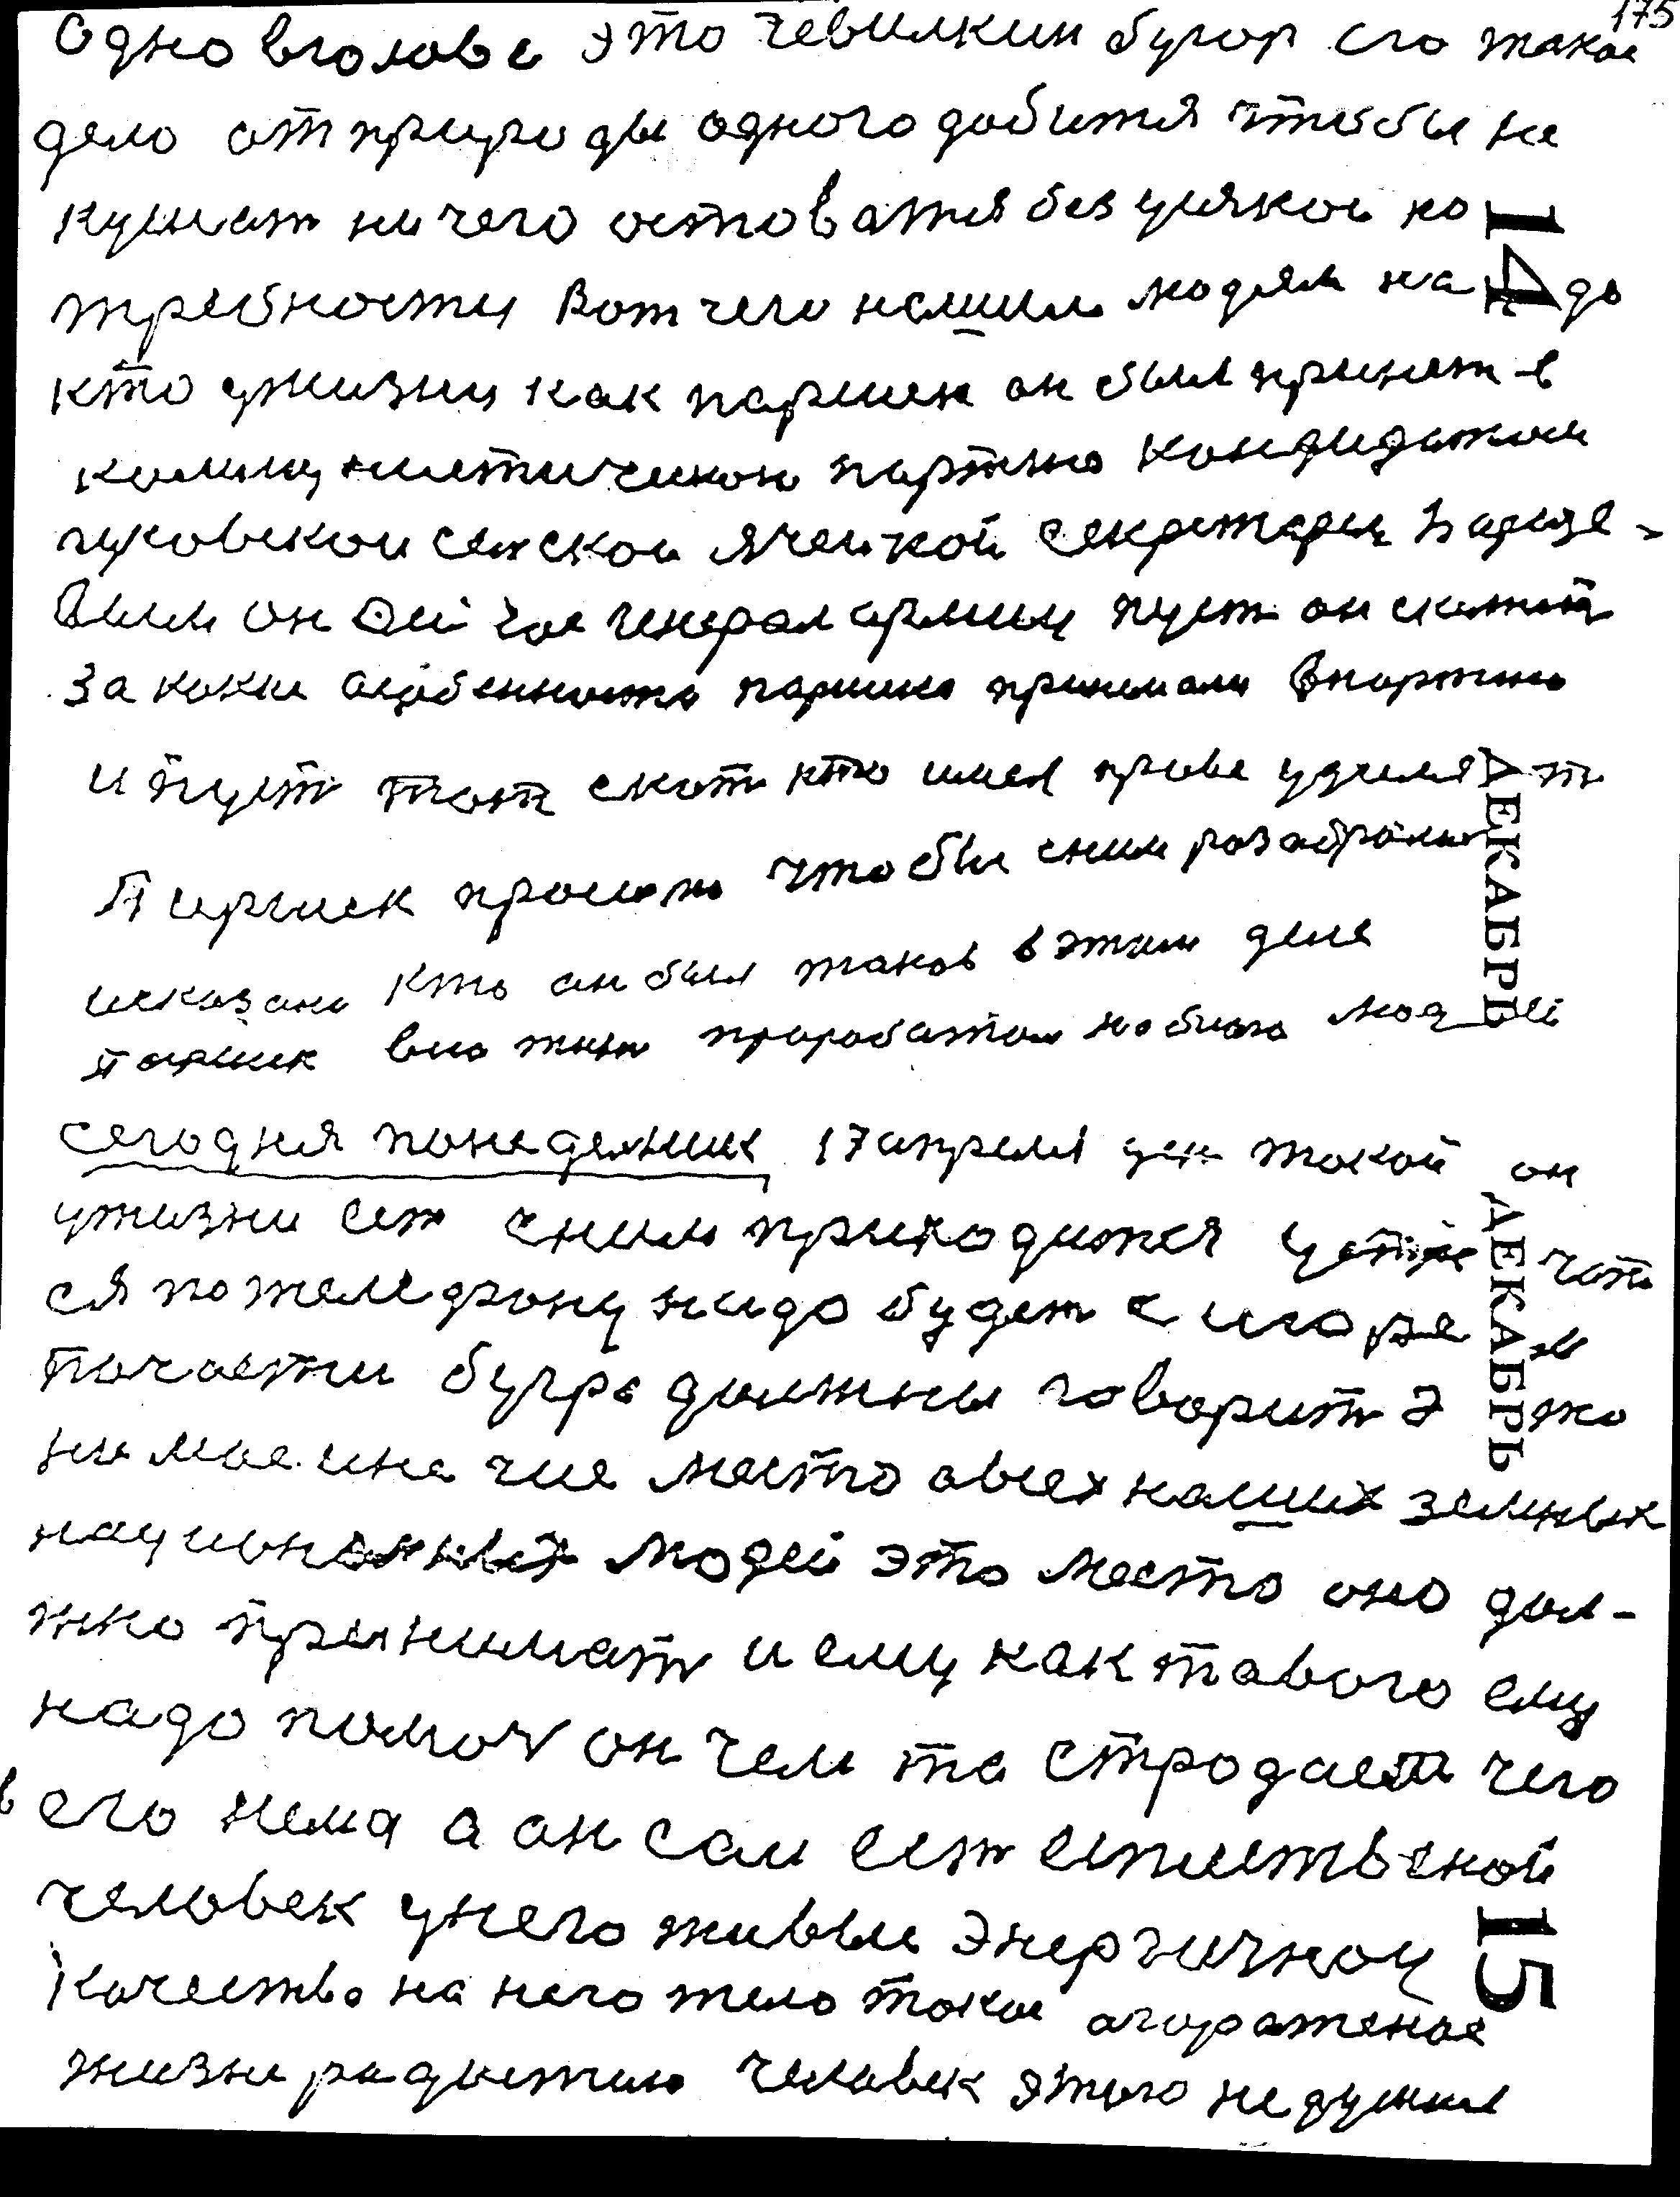 175
Одно вголове это чевилкин бугор его такое
дело от природы одного добится чтобы не
кушат ничего остоватся без усякой по
требности Вот чего нашим людям на до
кто ужизни как паршек он был принят в
комунистическою партию кондидатом
гуковской сельской ячейкой секретарем
вым он сейчас генерал армии пуст он скажит
за какие особенности паршика принимали впартию
и пуст тот скот кто имел право удалят
Паршек прошю чтобы сним разобралис
исказали кто он был таков в этим деле
паршек людей
сегодня понедельник 17 апреля ден такой он
ужизни ест сним приходится устре чат
ся по телефону надо будет с игорем
почасти бугра должны говорит это
не мое иначие место овсех наших земных
национальных людей это место оно дол-
жно принимат и ему как тавого ему
надо помоч он чем то стродает чего
в его нема а он сам ест естественой
человек унего живые энергичнои
качество на него тело такое
жизни радостию человек этого недужил
14
ДЕКАБРЬ
ДЕКАБРЬ
15